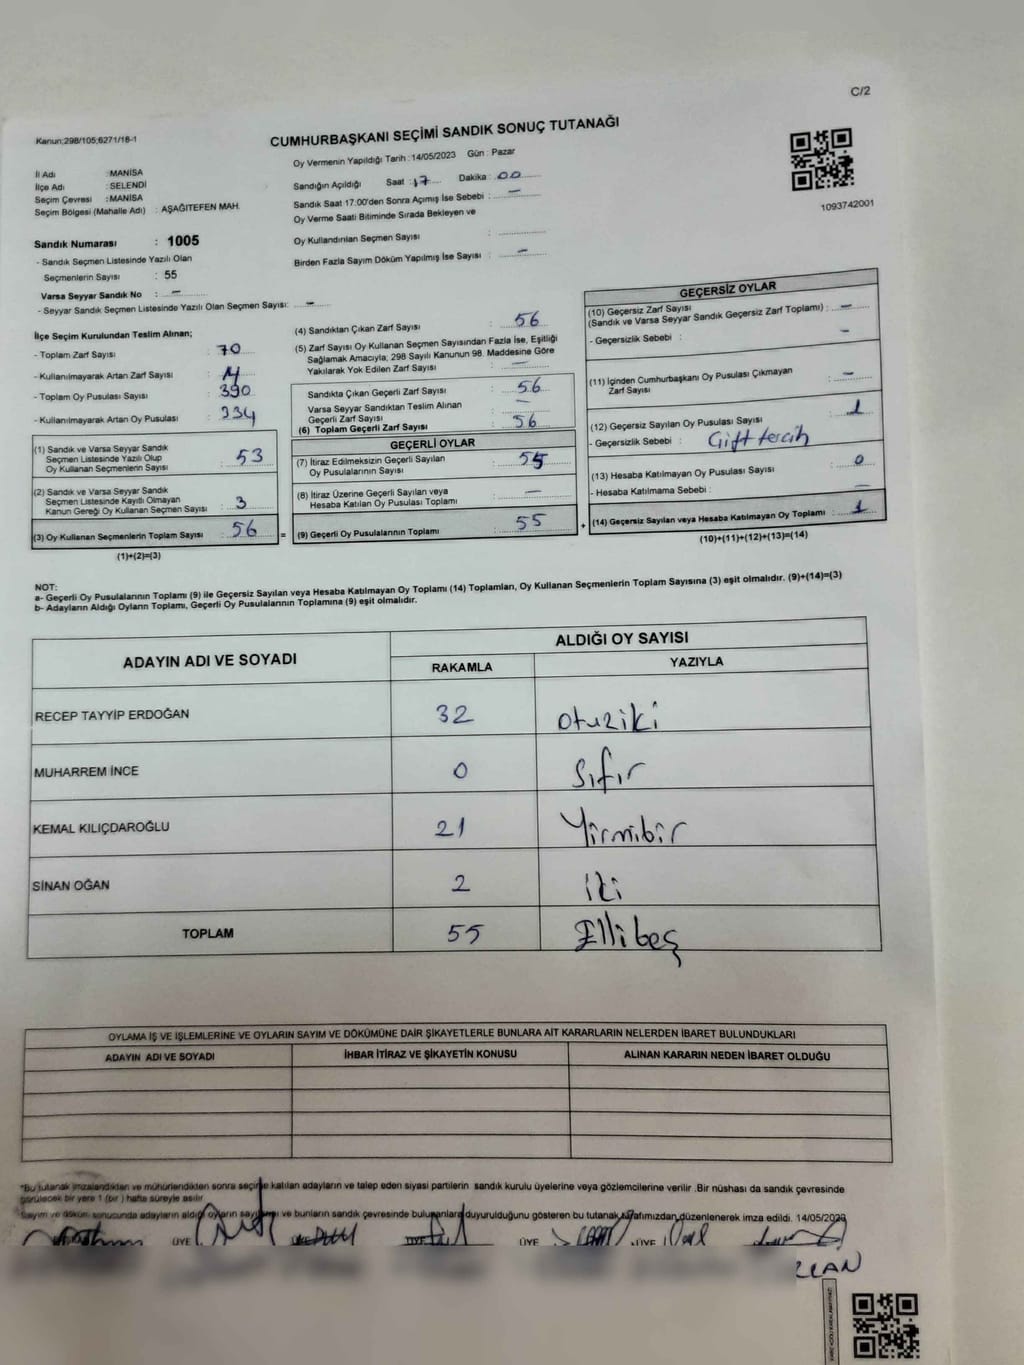 C/2
Kanun;298/105;6271/18-1
CUMHURBAŞKANI SEÇİMİ SANDIK SONUÇ TUTANAĞI
Oy Vermenin Yapıldığı Tarih :14/05/2023 Gün : Pazar
İl Adı :MANİSA
İlçe Adı :SELENDİ
Seçim Çevresi :MANİSA
Seçim Bölgesi (Mahalle Adı) : AŞAĞITEFEN MAH.
Sandığın Açıldığı Saat : 17 Dakika : 00
Sandık Saat 17:00'den Sonra Açımış İse Sebebi : —
Oy Verme Saati Bitiminde Sırada Bekleyen ve
Oy Kullandırılan Seçmen Sayısı :
Birden Fazla Sayım Döküm Yapılmış İse Sayısı : —
1093742001
Sandık Numarası : 1005
- Sandık Seçmen Listesinde Yazılı Olan
Seçmenlerin Sayısı : 55
Varsa Seyyar Sandık No : —
- Seyyar Sandık Seçmen Listesinde Yazılı Olan Seçmen Sayısı: —
İlçe Seçim Kurulundan Teslim Alınan;
- Toplam Zarf Sayısı : 70
- Kullanılmayarak Artan Zarf Sayısı :
- Toplam Oy Pusulası Sayısı : 390
- Kullanılmayarak Artan Oy Pusulası : 334
(1) Sandık ve Varsa Seyyar Sandık
Seçmen Listesinde Yazılı Olup
Oy Kullanan Seçmenlerin Sayısı : 53
(2) Sandık ve Varsa Seyyar Sandık
Seçmen Listesinde Kayıtlı Olmayan
Kanun Gereği Oy Kullanan Seçmen Sayısı : 3
(3) Oy Kullanan Seçmenlerin Toplam Sayısı : 56
(1)+(2)=(3)
(4) Sandıktan Çıkan Zarf Sayısı : 56
(5) Zarf Sayısı Oy Kullanan Seçmen Sayısından Fazla İse, Eşitliği
Sağlamak Amacıyla; 298 Sayılı Kanunun 98. Maddesine Göre
Yakılarak Yok Edilen Zarf Sayısı : —
Sandıkta Çıkan Geçerli Zarf Sayısı : 56
Varsa Seyyar Sandıktan Teslim Alınan
Geçerli Zarf Sayısı : —
(6) Toplam Geçerli Zarf Sayısı : 56
GEÇERLİ OYLAR
(7) İtiraz Edilmeksizin Geçerli Sayılan
Oy Pusulalarının Sayısı : 55
(8) İtiraz Üzerine Geçerli Sayılan veya
Hesaba Katılan Oy Pusulası Toplamı : —
= (9) Geçerli Oy Pusulalarının Toplamı : 55
GEÇERSİZ OYLAR
(10) Geçersiz Zarf Sayısı
(Sandık ve Varsa Seyyar Sandık Geçersiz Zarf Toplamı) : —
- Geçersizlik Sebebi : —
(11) İçinden Cumhurbaşkanı Oy Pusulası Çıkmayan
Zarf Sayısı : —
(12) Geçersiz Sayılan Oy Pusulası Sayısı : 1
- Geçersizlik Sebebi : Çift tercih
(13) Hesaba Katılmayan Oy Pusulası Sayısı : 0
- Hesaba Katılmama Sebebi : —
+ (14) Geçersiz Sayılan veya Hesaba Katılmayan Oy Toplamı : 1
(10)+(11)+(12)+(13)=(14)
NOT:
a- Geçerli Oy Pusulalarının Toplamı (9) ile Geçersiz Sayılan veya Hesaba Katılmayan Oy Toplamı (14) Toplamları, Oy Kullanan Seçmenlerin Toplam Sayısına (3) eşit olmalıdır. (9)+(14)=(3)
b- Adayların Aldığı Oyların Toplamı, Geçerli Oy Pusulalarının Toplamına (9) eşit olmalıdır.
ADAYIN ADI VE SOYADI ALDIĞI OY SAYISI
RAKAMLA YAZIYLA
RECEP TAYYİP ERDOĞAN 32 otuziki
MUHARREM İNCE 0 Sıfır
KEMAL KILIÇDAROĞLU 21 Yirmibir
SİNAN OĞAN 2 iki
TOPLAM 55 Ellibeş
OYLAMA İŞ VE İŞLEMLERİNE VE OYLARIN SAYIM VE DÖKÜMÜNE DAİR ŞİKAYETLERLE BUNLARA AİT KARARLARIN NELERDEN İBARET BULUNDUKLARI
ADAYIN ADI VE SOYADI İHBAR İTİRAZ VE ŞİKAYETİN KONUSU ALINAN KARARIN NEDEN İBARET OLDUĞU
*Bu tutanak imzalandıktan ve mühürlendikten sonra seçime katılan adayların ve talep eden siyasi partilerin sandık kurulu üyelerine veya gözlemcilerine verilir .Bir nüshası da sandık çevresinde
görülecek bir yere 1 (bir ) hafta süreyle asılır.
*Sayım ve döküm sonucunda adayların aldığı oyların sayılarını ve bunların sandık çevresinde bulunanlara duyurulduğunu gösteren bu tutanak tarafımızdan düzenlenerek imza edildi. 14/05/2023
ÜYE ÜYE ÜYE